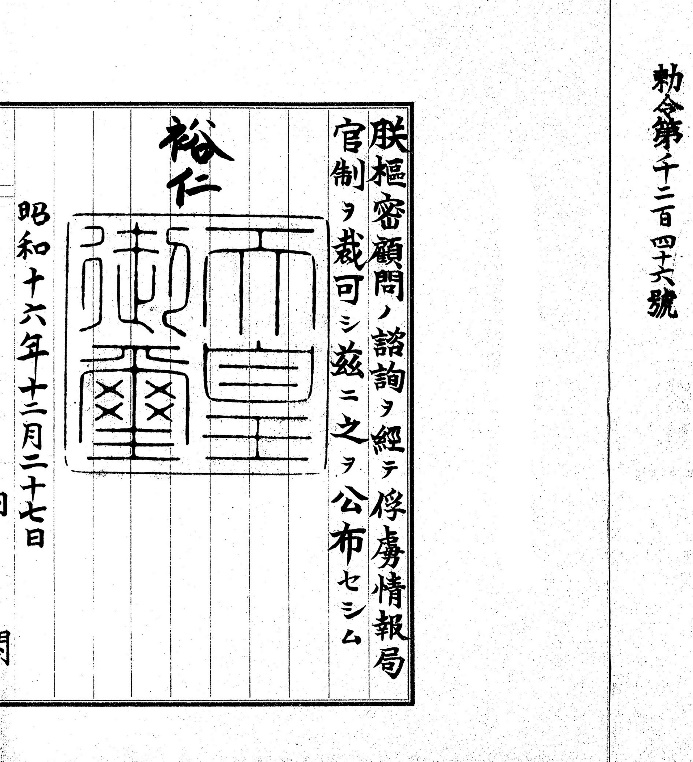 勅令第千二百四十六號
朕樞密顧問ノ諮詢ヲ經テ俘虜情報局
官制ヲ裁可シ茲ニ之ヲ公布セシム
裕仁
天皇
御璽
昭和十六年十二月二十七日